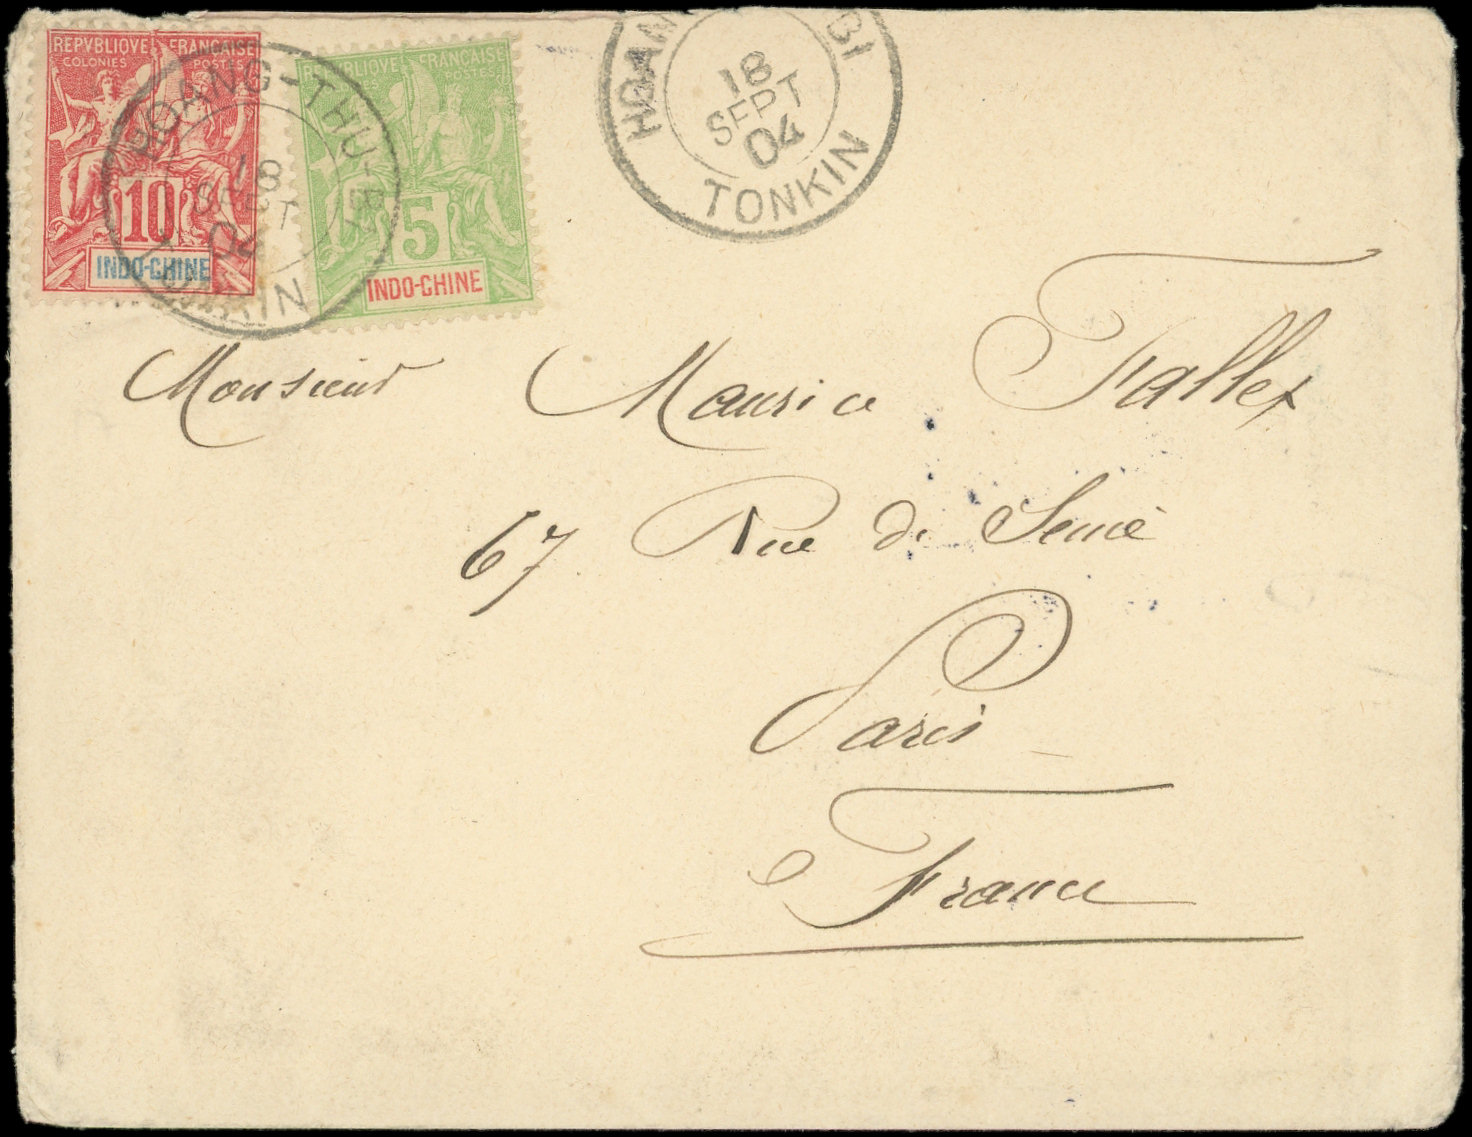 REPVBLIQVE FRANÇAISE
COLONIES POSTES
10
INDO-CHINE
REPVBLIQVE FRANÇAISE
POSTES
5
INDO-CHINE
HOANG-THU-BI
18
SEPT
04
TONKIN
18
SEPT
04
TONKIN
Monsieur Maurice Fallex
67 Rue de Seine
Paris
France